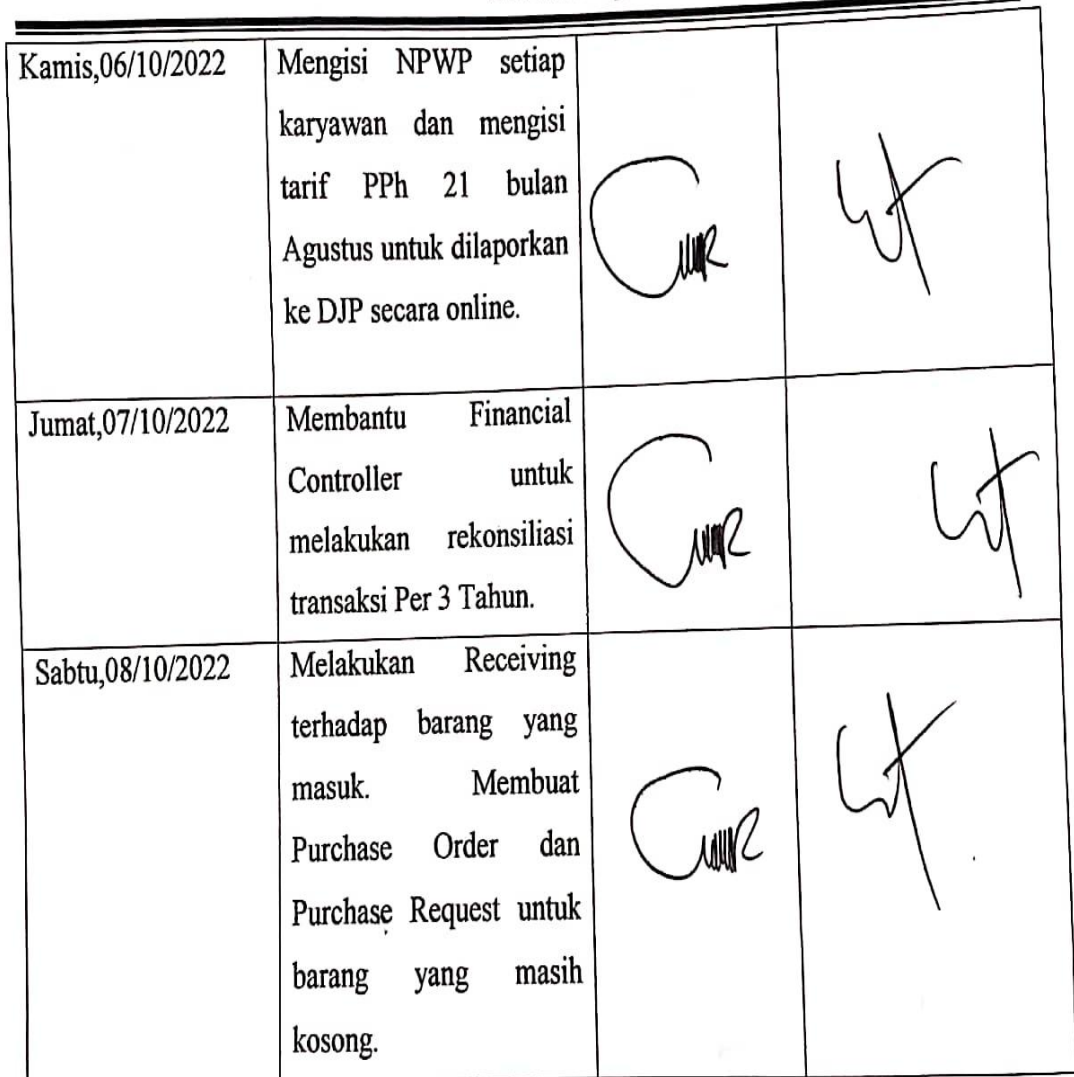 Kamis,06/10/2022
Mengisi NPWP setiap
karyawan dan mengisi
tarif PPh 21 bulan
Agustus untuk dilaporkan
ke DJP secara online.
Jumat,07/10/2022
Membantu Financial
Controller untuk
melakukan rekonsiliasi
transaksi Per 3 Tahun.
Sabtu,08/10/2022
Melakukan Receiving
terhadap barang yang
masuk. Membuat
Purchase Order dan
Purchase Request untuk
barang yang masih
kosong.